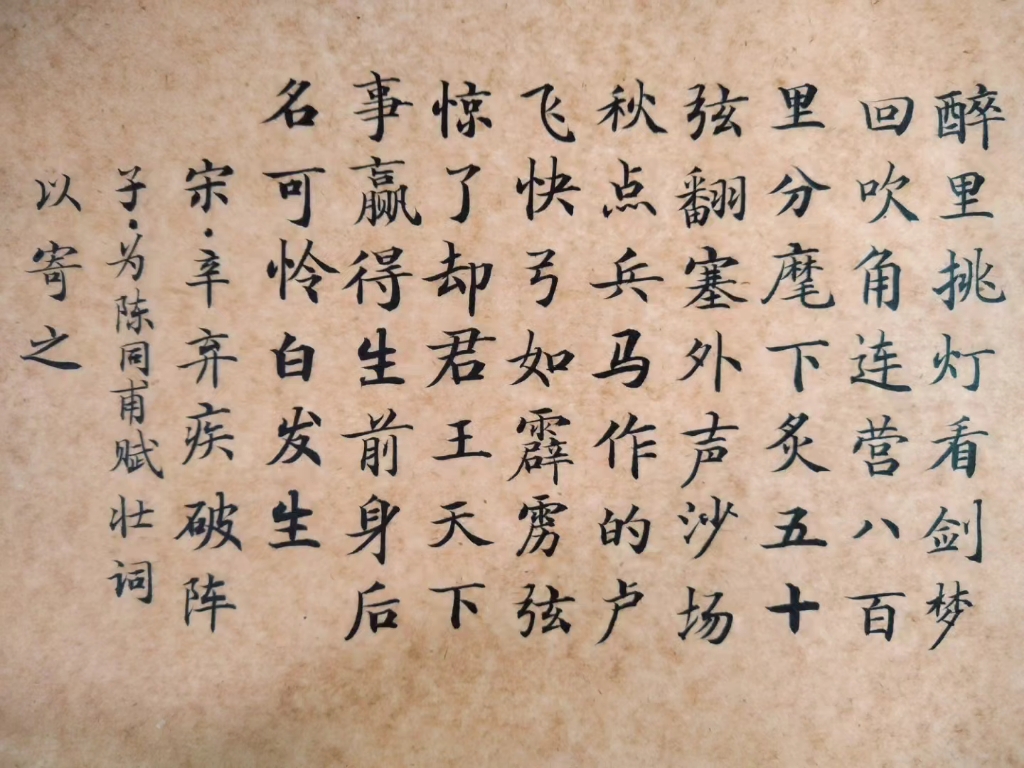 醉里挑灯看剑梦
回吹角连营八百
里分麾下炙五十
弦翻塞外声沙场
秋点兵马作的卢
飞快弓如霹雳弦
惊了却君王天下
事赢得生前身后
名可怜白发生
宋·辛弃疾破阵
子·为陈同甫赋壮词
以寄之